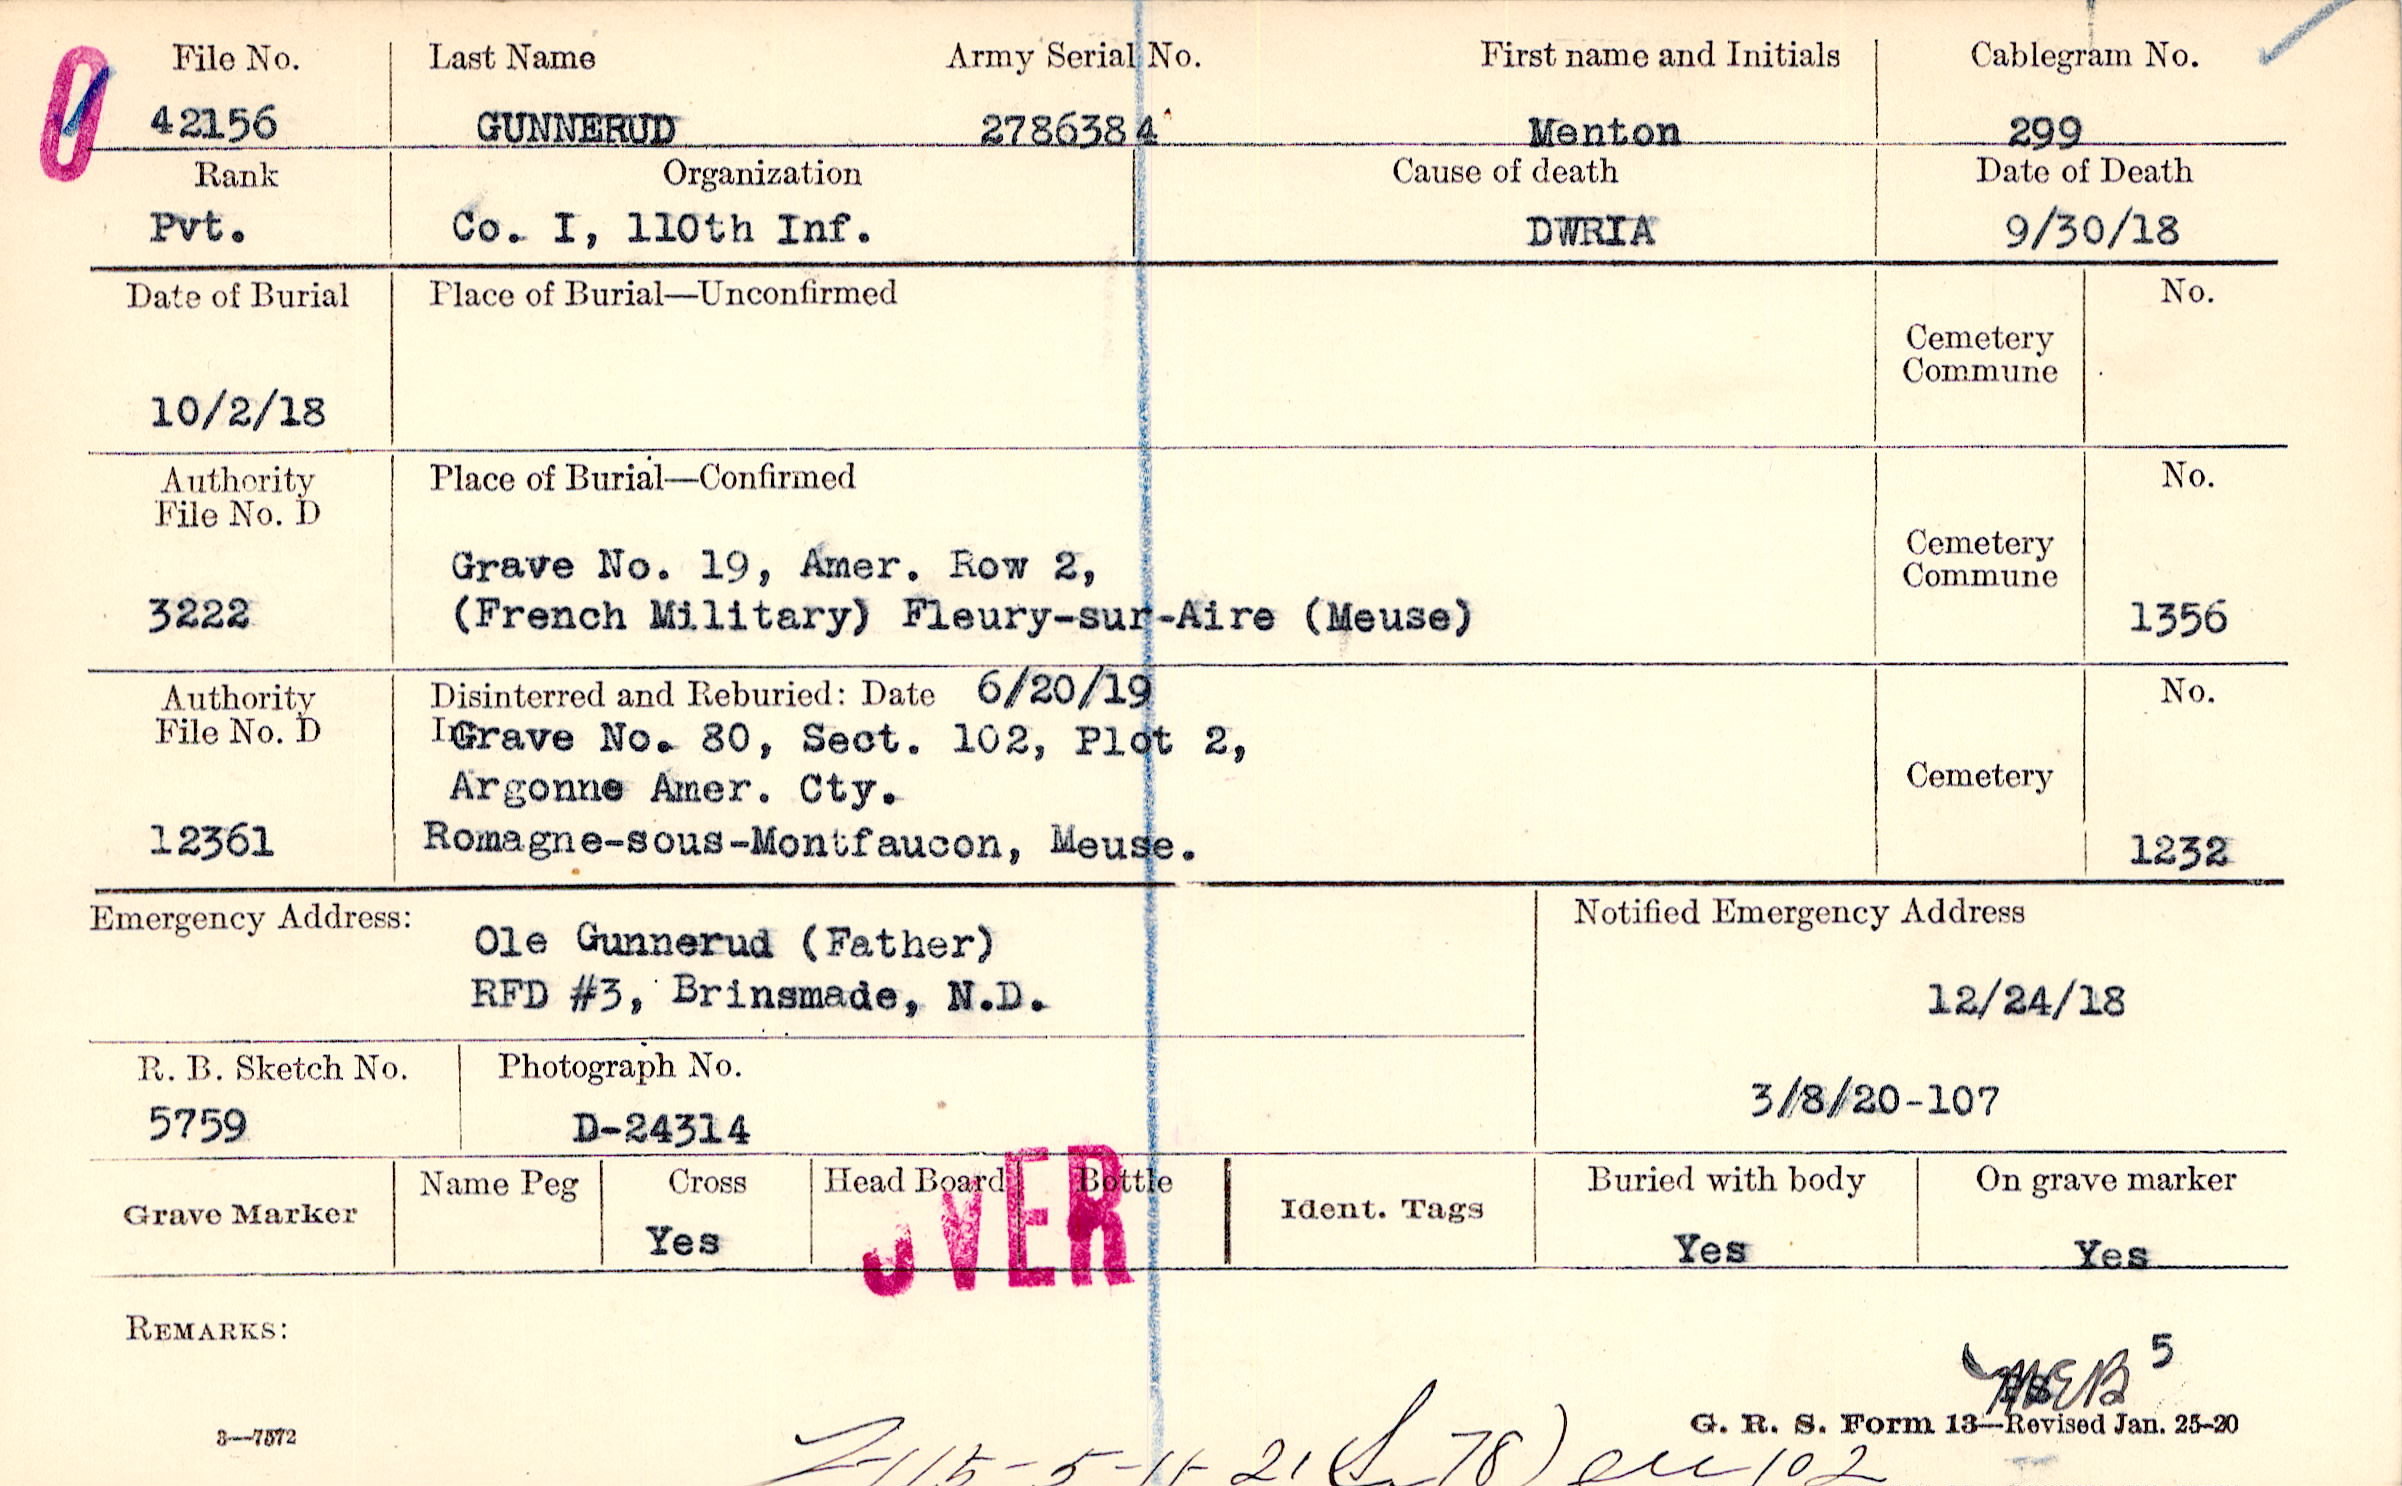 File No. Last Name Army Serial No. First name and Initials Cablegram No.
42156 GUNNERUD 2786384 Menton 299
Rank Organization Cause of death Date of Death
Pvt. Co. I, 110th Inf. DWRIA 9/30/18
Date of Burial Place of Burial—Unconfirmed No.
Cemetery
Commune
10/2/18
Authority Place of Burial—Confirmed No.
File No. D
Cemetery
Grave No. 19, Amer. Row 2, Commune
3222 (French Military) Fleury-sur-Aire (Meuse) 1356
Authority Disinterred and Reburied: Date 6/20/19 No.
File No. D In Grave No. 80, Sect. 102, Plot 2,
Argonne Amer. Cty. Cemetery
12361 Romagne-sous-Montfaucon, Meuse. 1232
Emergency Address: Notified Emergency Address
Ole Gunnerud (Father)
RFD #3, Brinsmade, N.D. 12/24/18
R. B. Sketch No. Photograph No.
5759 D-24314 3/8/20-107
Name Peg Cross Head Board Bottle Buried with body On grave marker
Grave Marker Ident. Tags
Yes Yes Yes
OVER
REMARKS:
5
MEB
G. R. S. Form 13—Revised Jan. 25-20
3—7572